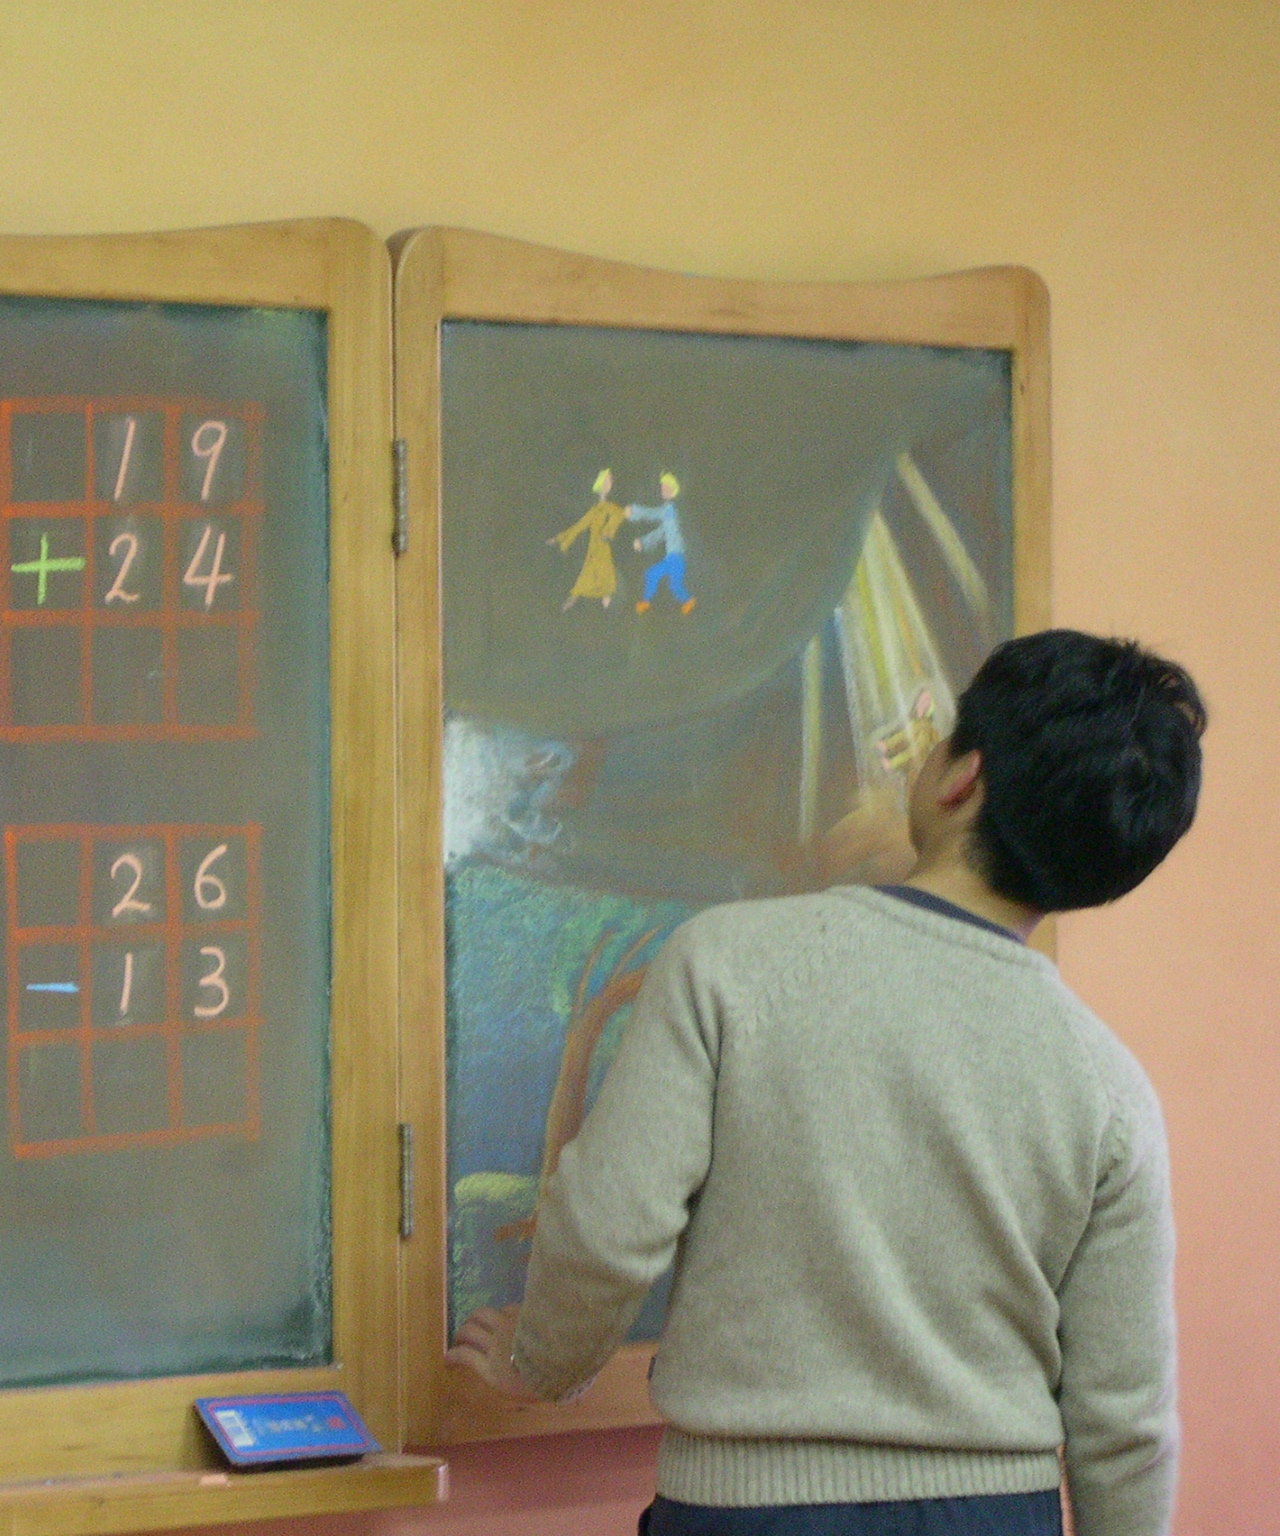 19
+24
26
-13